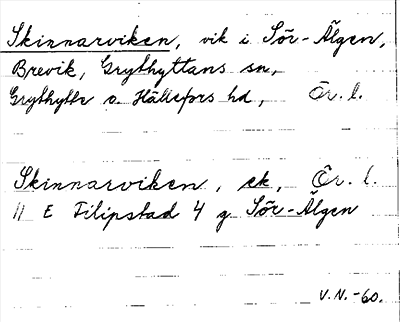 Skinnarviken, vik i Sör-Älgen,
Brevik, Grythyttans sn,
Grythytte o. Hällefors hd, Ör. l.
Skinnarviken, ek, Ör. l.
11 E Filipstad 4 g Sör-Älgen
V.N.-60.